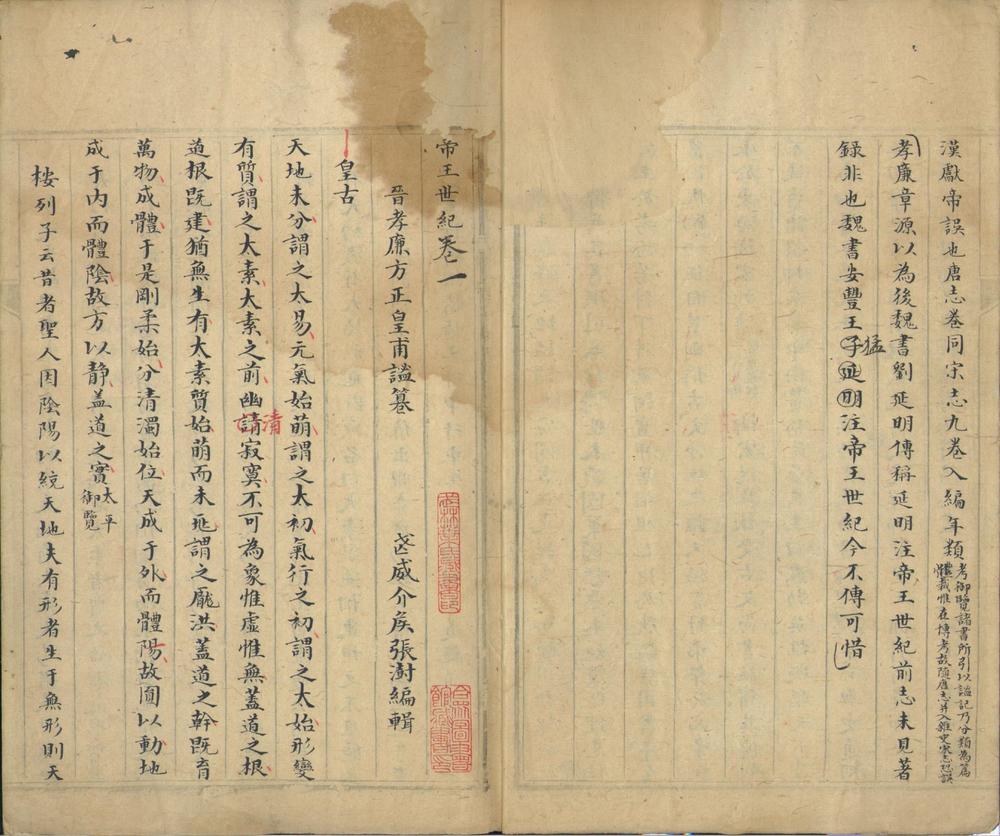 漢獻帝誤也唐志卷同宋志九卷入編年類考御覽諸書所引以謐記乃分類為篇
體裁惟在博考故隨唐志并入雜史宋志恐誤
孝廉章源以為後魏書劉延明傳稱延明注帝王世紀前志未見著
録非也魏書安豐王猛子延明注帝王世紀今不傳可惜
帝王世紀卷一
晉孝廉方正皇甫謐纂
武威介矦張澍編輯
皇古
天地未分謂之太易元氣始萌謂之太初氣行之初謂之太始形變
有質謂之太素太素之前幽請清寂寞不可為象惟虛惟無蓋道之根
道根既建猶無生有太素質始萌而未兆謂之龐洪蓋道之幹既育
萬物成體于是剛柔始分清濁始位天成于外而體陽故圓以動地
成于内而體陰故方以靜蓋道之實太平
御覽
按列子云昔者聖人因陰陽以統天地夫有形者生于無形則天